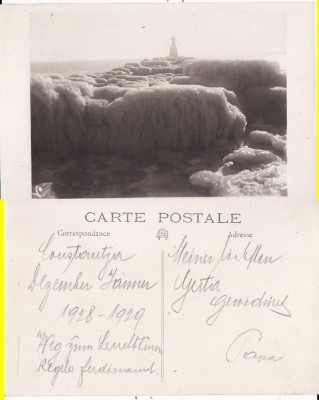 CARTE POSTALE
Correspondance
Adresse
Constantza
Dezember Jänner
1928 - 1929
Weg zum Leuchtturm
Regele ferdinand.
Meiner
Gerta
gewidmet
Papa